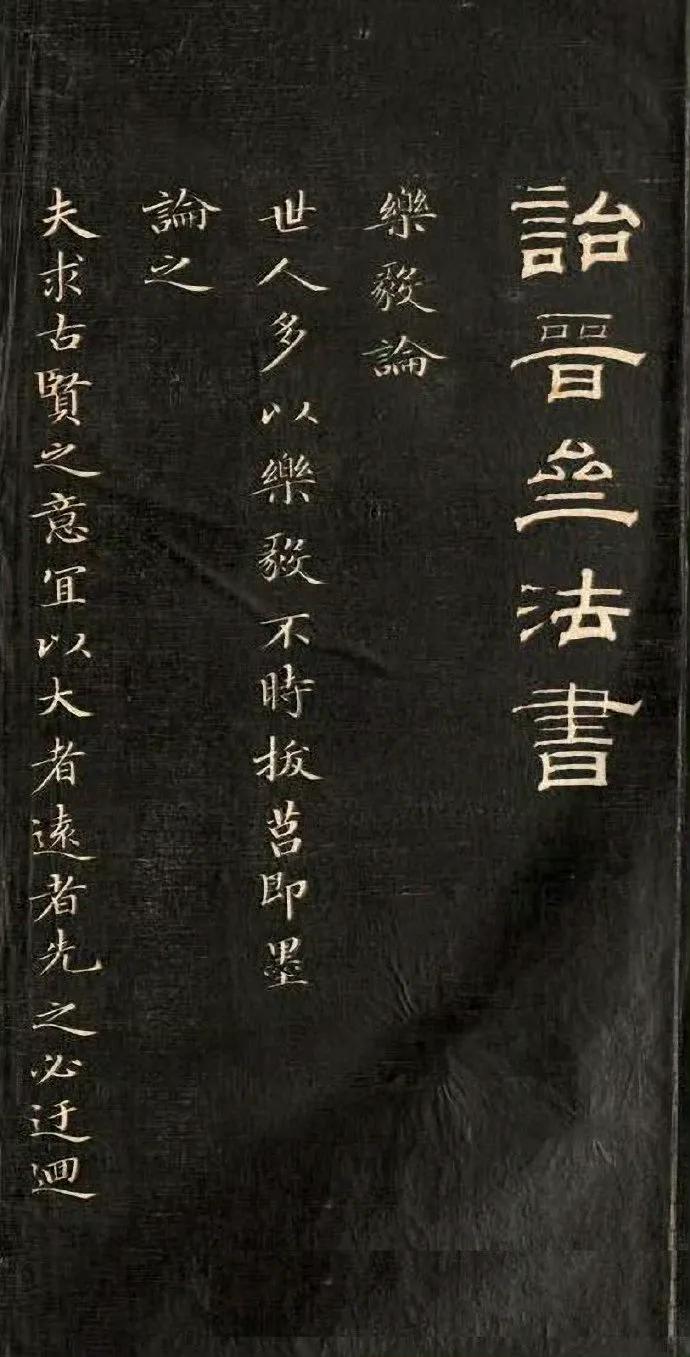 詒晉叄法書
樂毅論
世人多以樂毅不時拔莒即墨
論之
夫求古賢之意宜以大者遠者先之必迂迴